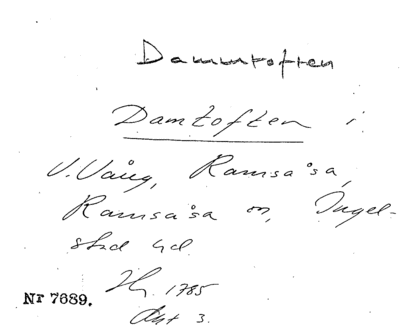 Dammtoften
Damtoften i
V. Vång, Ramsåsa,
Ramsåsa sn, Ingel-
stad hd.
1785
Nr 7689.
Akt 3.